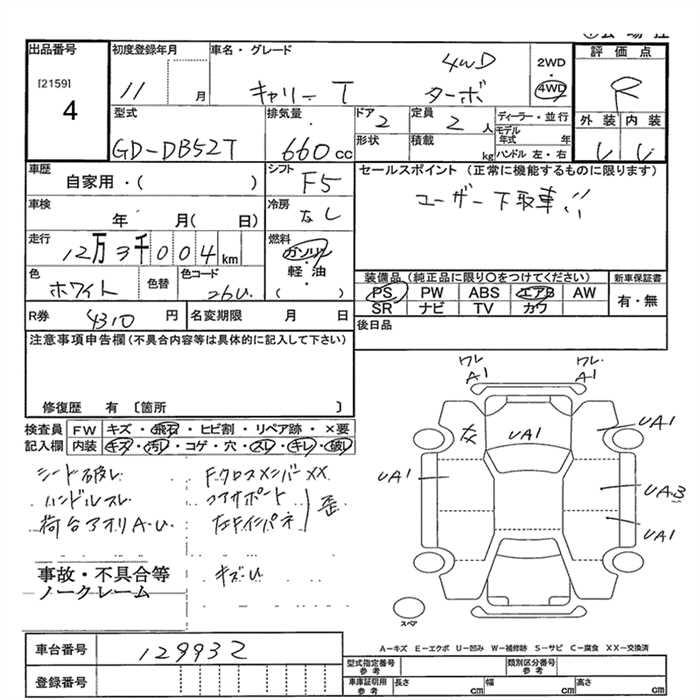 出品番号
[2159]
4
初度登録年月
11 月
車名・グレード
キャリー T 4WD ターボ
2WD
・
4WD
評価点
R
外装 内装
U U
型式
GD-DB52T
排気量
660 cc
ドア
2
定員
2 人
ディーラー・並行
モデル年式 年
形状
積載 kg
ハンドル 左・右
車歴
自家用・( )
シフト
F5
セールスポイント (正常に機能するものに限ります)
ユーザー下取車!!
車検
年 月( 日)
冷房
なし
走行
12万3千004km
燃料
ガソリン
・
軽油
・
( )
色
ホワイト
色替
色コード
26U
装備品 (純正品に限り○をつけてください)
PS PW ABS エアB AW
SR ナビ TV カワ
新車保証書
有・無
R券 4310 円
名変期限 月 日
後日品
注意事項申告欄(不具合内容等は具体的に記入して下さい)
修復歴 有 〔箇所 〕
検査員 FW キズ・飛石・ヒビ割・リペア跡・×要
記入欄 内装 キズ・汚レ・コゲ・穴・スレ・キレ・破レ
シート破レ
ハンドルスレ
荷台アオリA・U
F.クロスメンバーXX
コアサポート
左Fインパネ
歪
キズU
事故・不具合等
ノークレーム
ワレ
A1
ワレ
A1
UA1
UA1
UA1
UA3
UA1
スペア
A－キズ E－エクボ U－凹み W－補修跡 S－サビ C－腐食 XX－交換済
車台番号
129932
登録番号
型式指定番号
参考
類別区分番号
参考
車庫証明用
参考
長さ cm
幅 cm
高さ cm